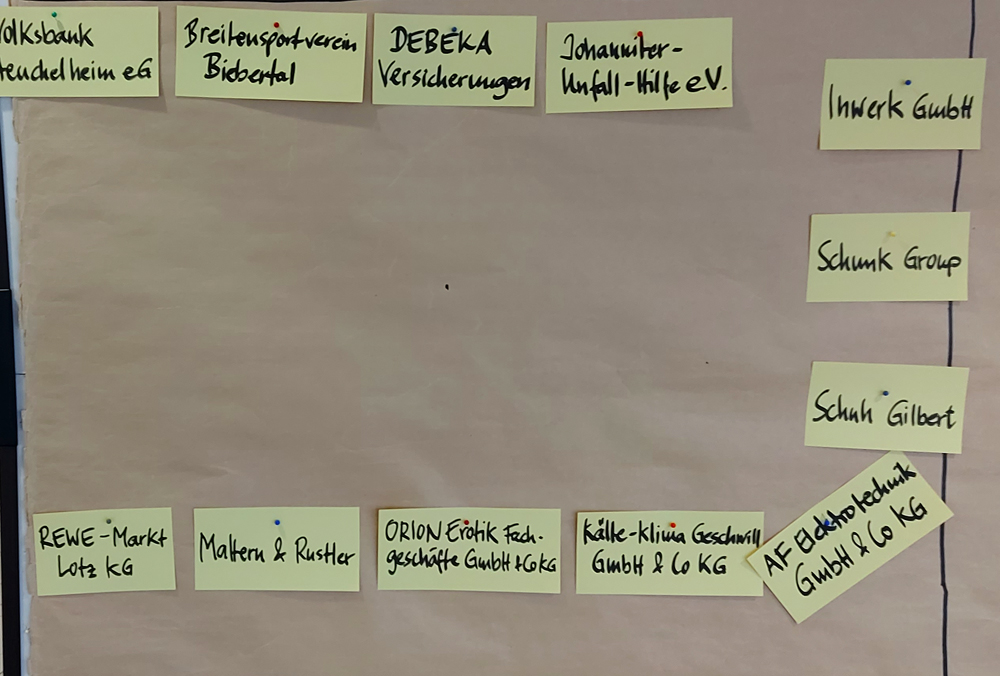 Volksbank
Heuchelheim eG
Breitensportverein
Biebertal
DEBEKA
Versicherungen
Johanniter-
Unfall-Hilfe e.V.
Inwerk GmbH
Schunk Group
Schuh Gilbert
AF Elektrotechnik
GmbH & Co KG
REWE-Markt
Lotz KG
Maltern & Rustler
ORION Erotik Fach-
geschäfte GmbH + Co KG
Kälte-Klima Geschwill
GmbH & Co KG